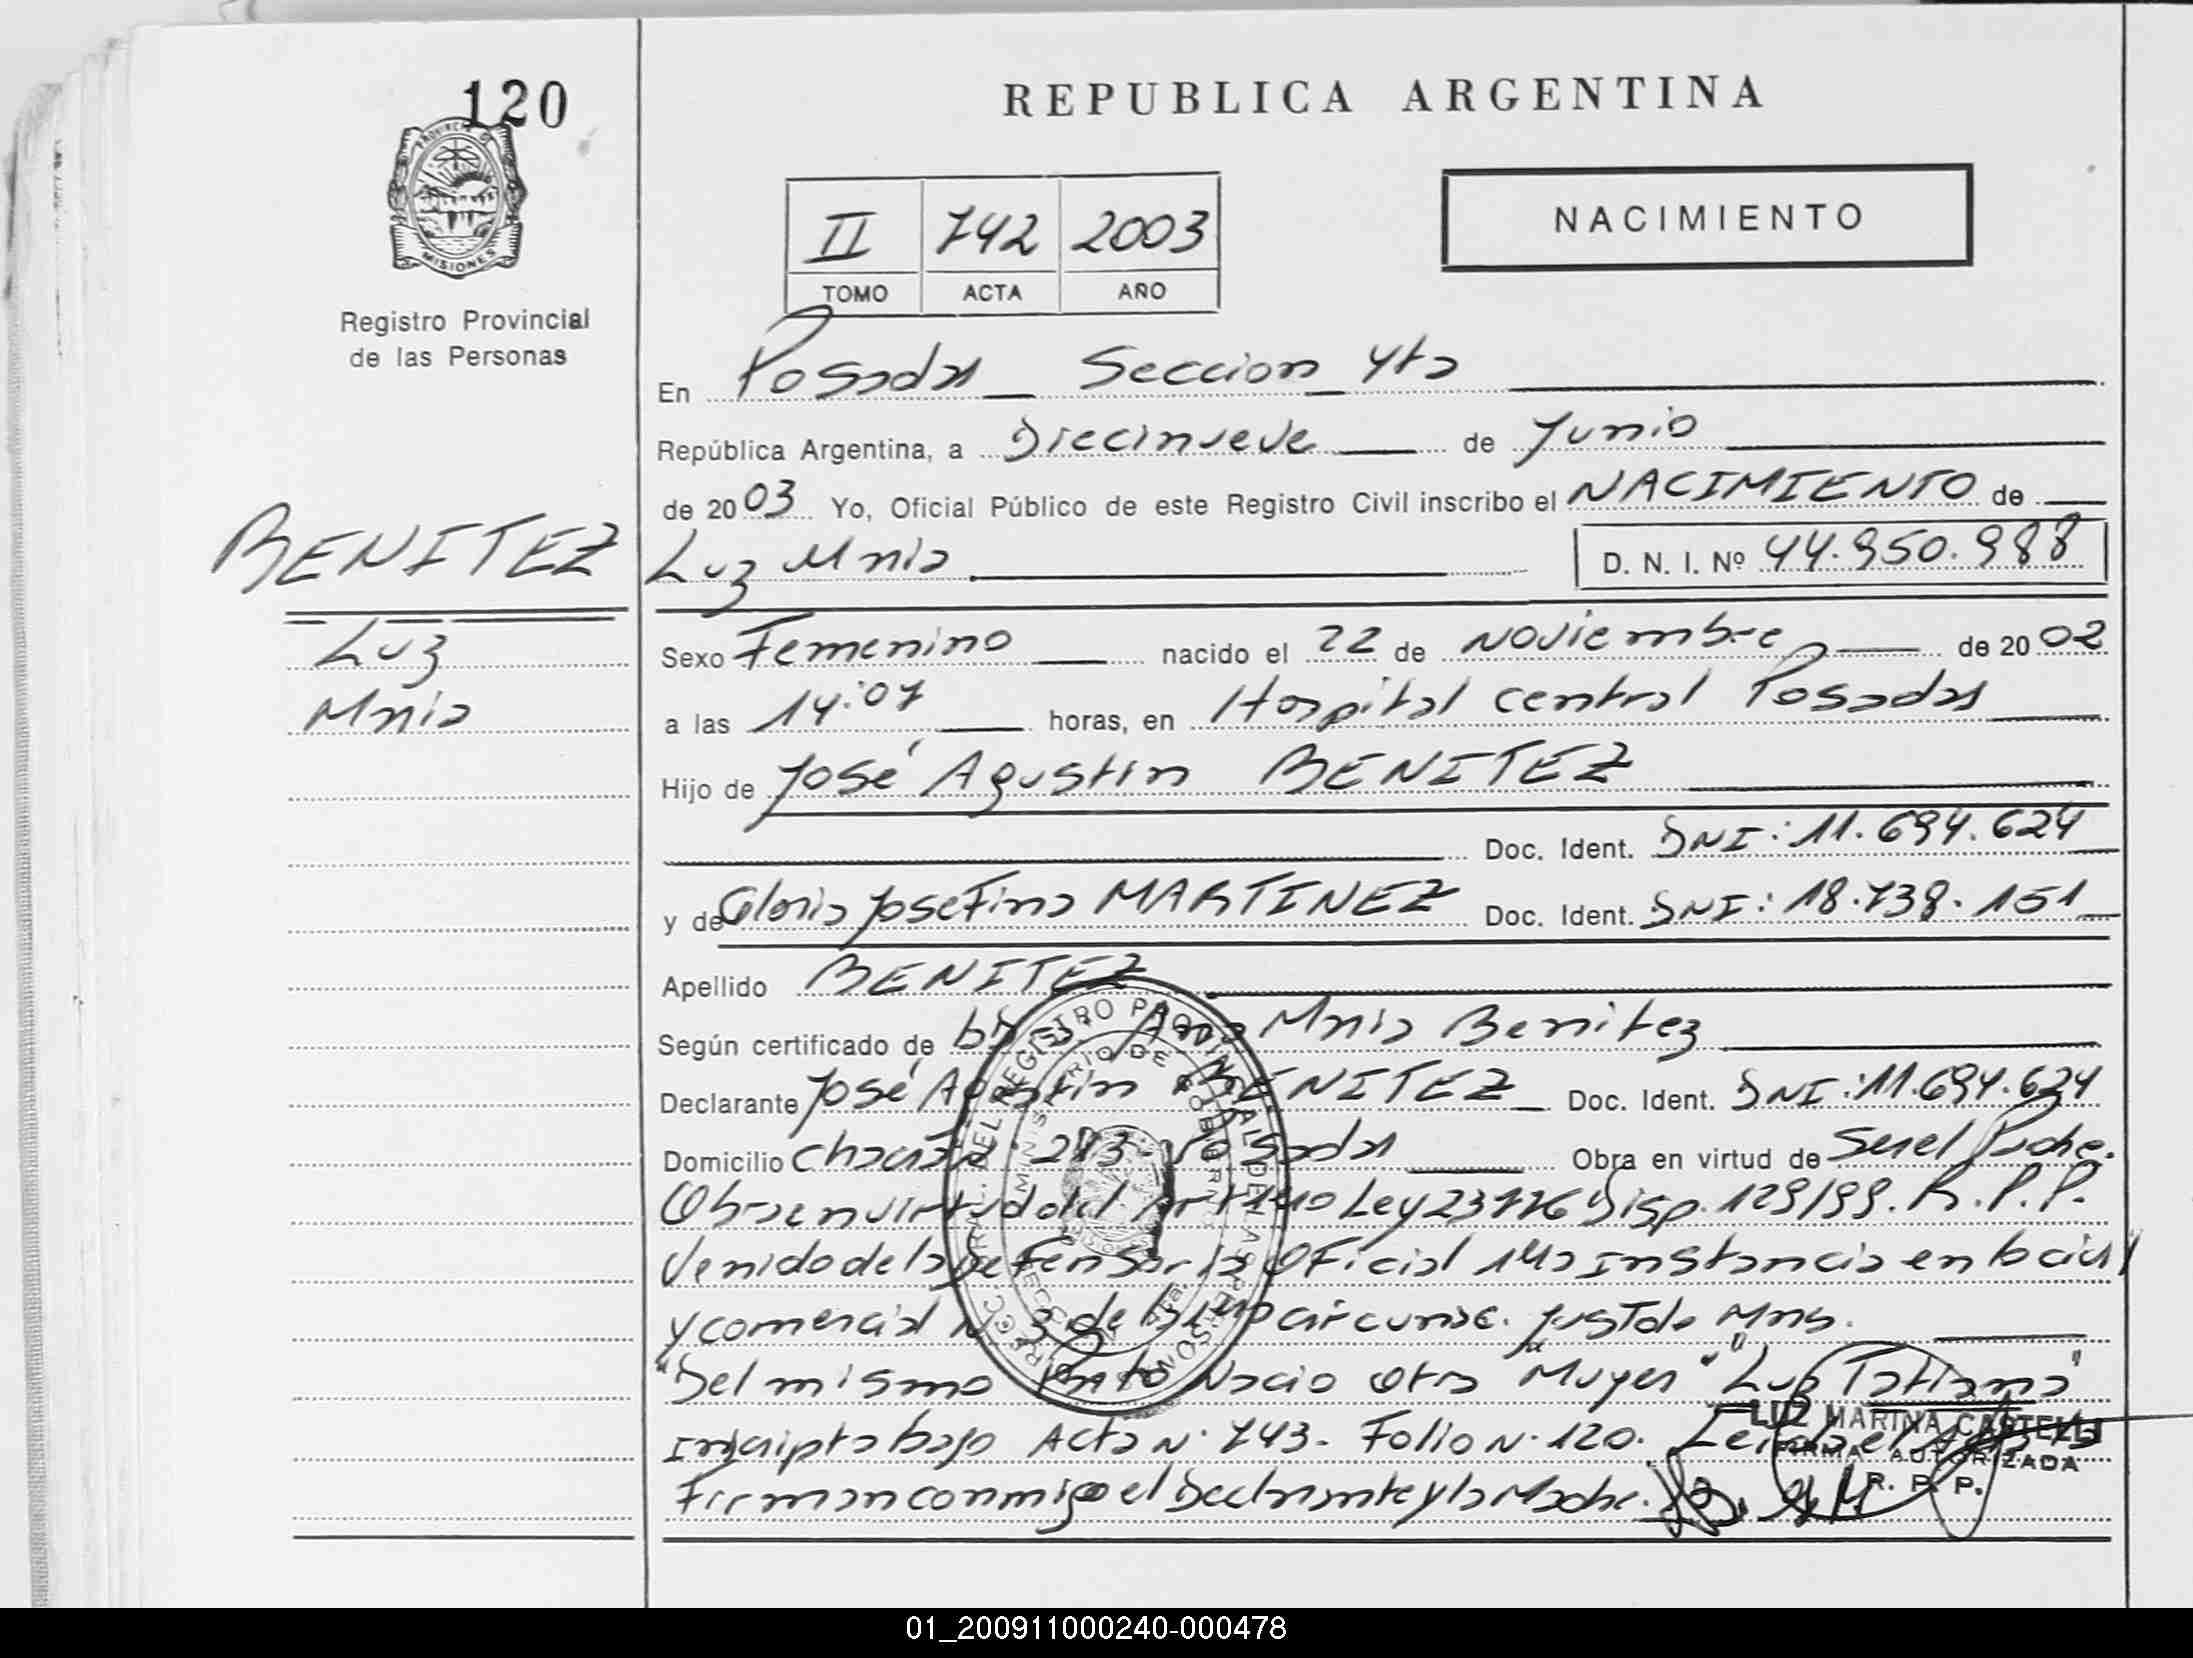 120
PROVINCIA DE
MISIONES
Registro Provincial
de las Personas
REPUBLICA ARGENTINA
II 742 2003
TOMO ACTA AÑO
NACIMIENTO
En Posadas Seccion 4ta
República Argentina, a Diecinueve de Junio
de 2003 Yo, Oficial Público de este Registro Civil inscribo el NACIMIENTO de
BENITEZ
Luz Mnia
D. N. I. Nº 44.950.988
Luz
Mnia
Sexo Femenino nacido el 22 de Noviembre de 2002
a las 14:07 horas, en Hospital central Posadas
Hijo de José Agustin BENITEZ
Doc. Ident. DNI: 11.694.624
y de Gloria Josefina MARTINEZ Doc. Ident. DNI: 18.738.151
Apellido BENITEZ
Según certificado de Ana Mnia Benitez
Declarante José Agustin BENITEZ Doc. Ident. DNI: 11.694.624
Domicilio chacra 243 Posadas Obra en virtud de Ser el Padre.
Obra en virtud del Art Ley 23776 Disp. 129/99. R.P.P.
Venido de la Defensoria Oficial 1ra Instancia en lo civil
y comercial N 3 de circunsc. Just de Mns.
"Del mismo Parto Nacio otra Mujer" "Luz Tatiana"
Inscripta bajo Acta N. 743. Folio N. 120. Leida el Acta
Firman conmigo el Declarante y la Madre.
LUZ MARINA CASTELLI
FIRMA AUTORIZADA
R. P. P.
01_200911000240-000478